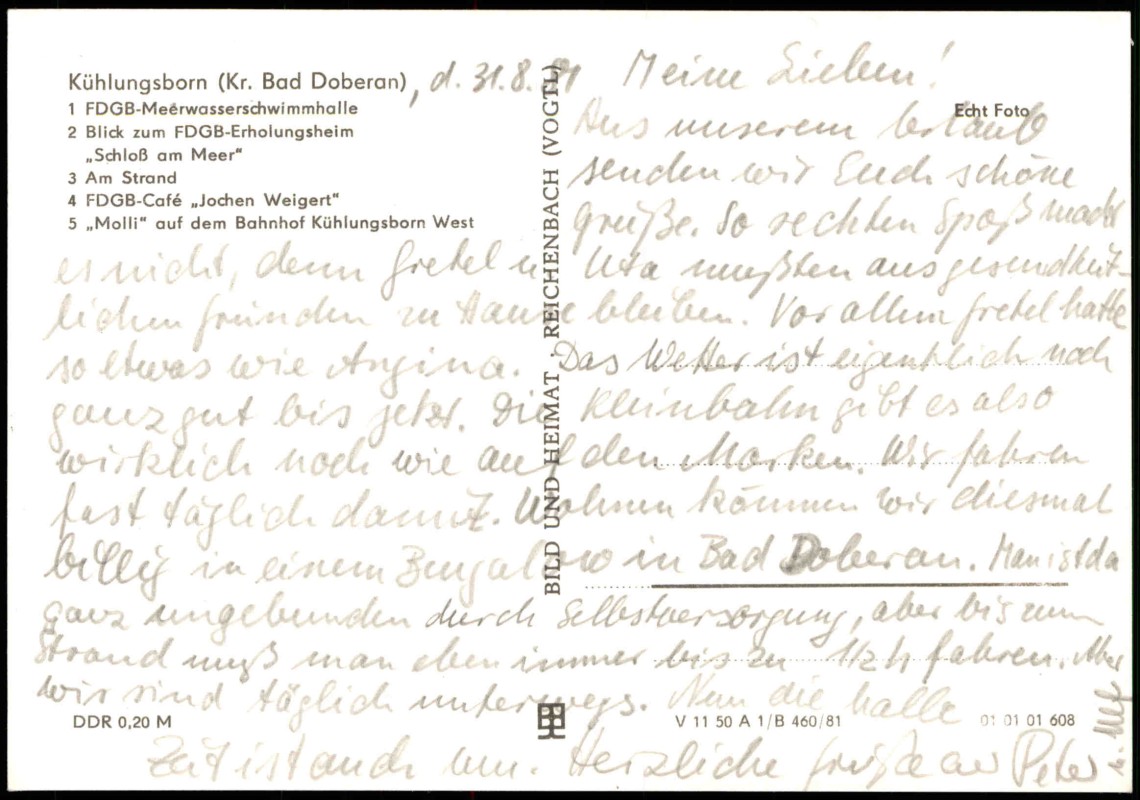 Kühlungsborn (Kr. Bad Doberan), d. 31.8.81
1 FDGB-Meerwasserschwimmhalle
2 Blick zum FDGB-Erholungsheim
„Schloß am Meer“
3 Am Strand
4 FDGB-Café „Jochen Weigert“
5 „Molli“ auf dem Bahnhof Kühlungsborn West
Echt Foto
BILD UND HEIMAT · REICHENBACH (VOGTL)
Meine Lieben!
Aus unserem Urlaub
senden wir Euch schöne
Grüße. So rechten Spaß macht
es nicht, denn Gretel u Uta mußten aus gesundheit-
lichen Gründen zu Hause bleiben. Vor allem Gretel hatte
so etwas wie Angina. Das Wetter ist eigentlich noch
ganz gut bis jetzt. Die Kleinbahn gibt es also
wirklich noch wie auf den Marken. Wir fahren
fast täglich damit. Wohnen können wir diesmal
billig in einem Bungalow in Bad Doberan. Man ist da
ganz ungebunden durch Selbstversorgung, aber bis zum
Strand muß man eben immer bis zu 1/2 h fahren. Aber
wir sind täglich unterwegs. Nun die halbe
Zeit ist auch um. Herzliche Grüße Peter
DDR 0,20 M
V 11 50 A 1/B 460/81
01 01 01 608